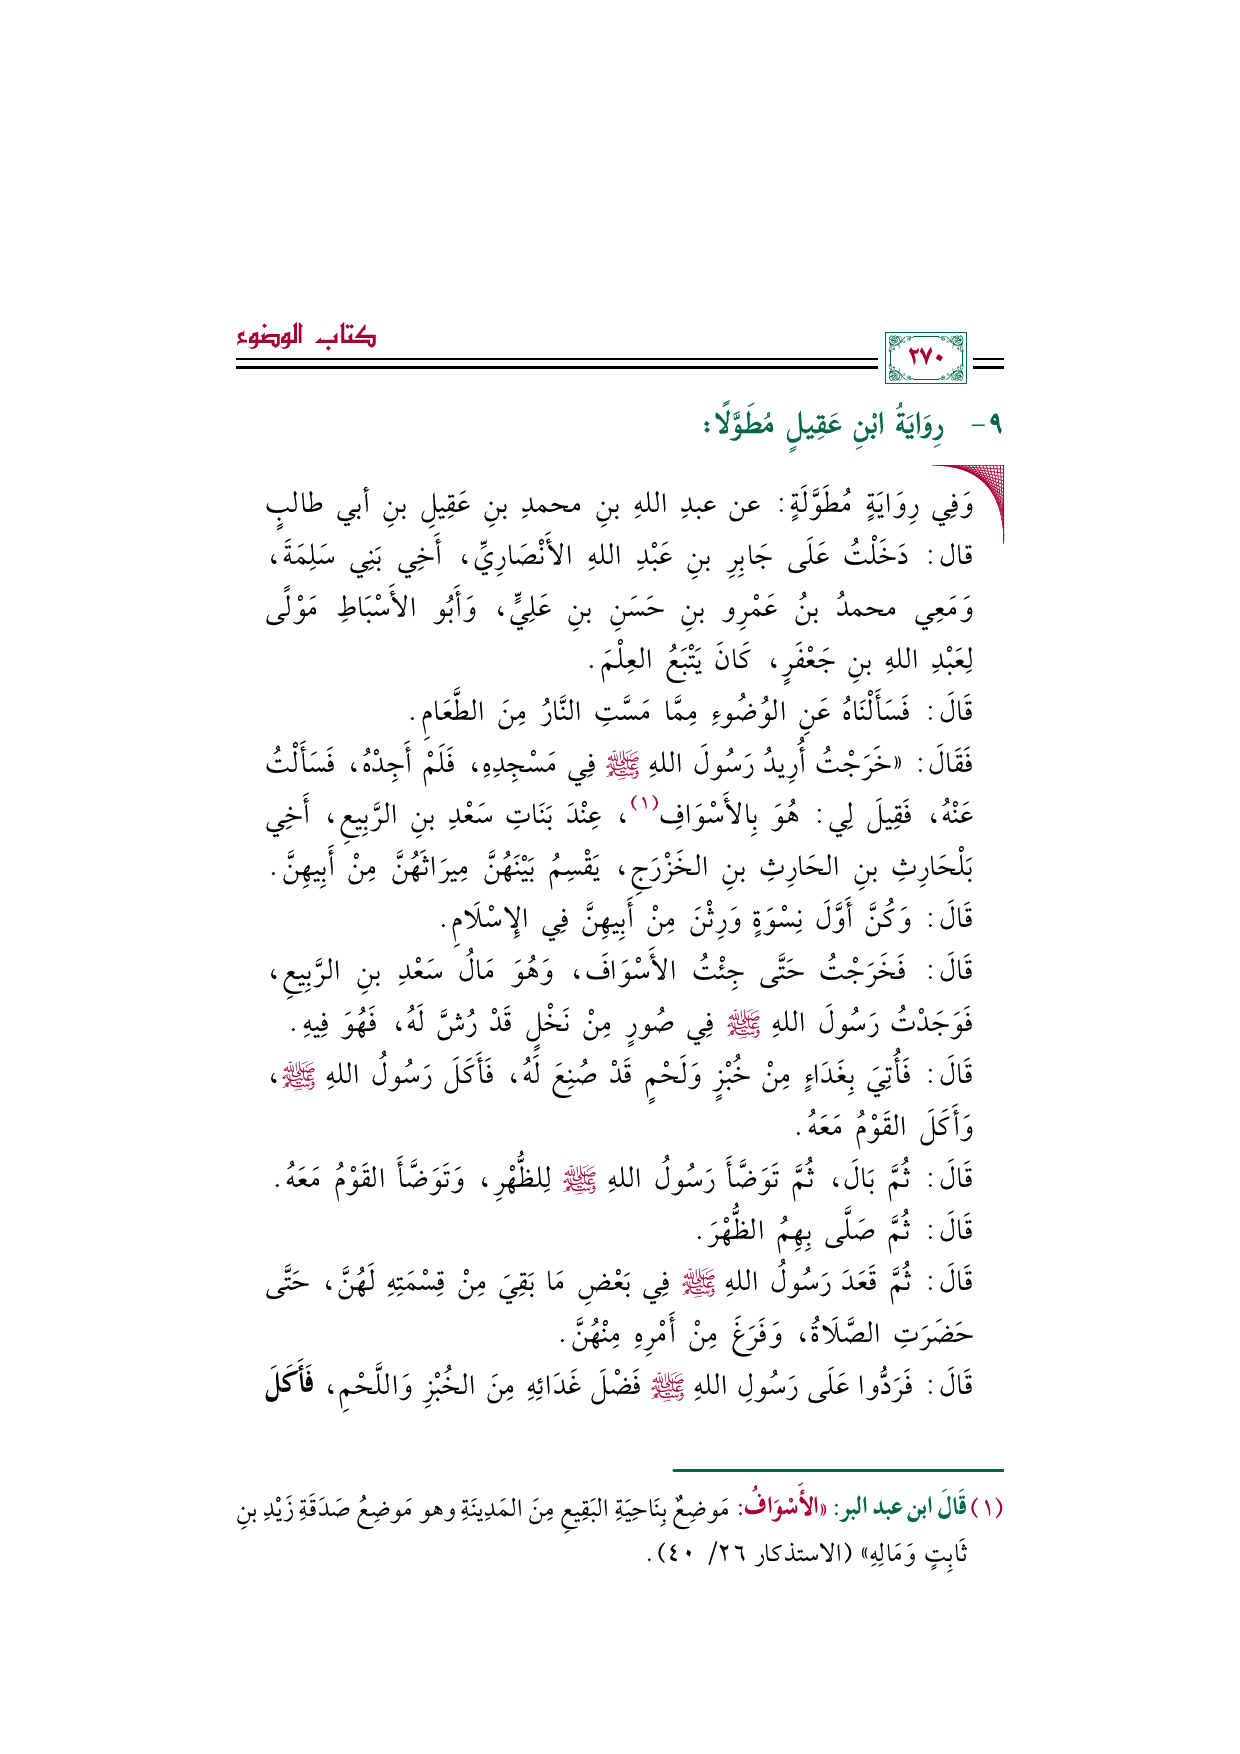 كتاب الوضوء
٢٧٠
٩- رِوَايَةُ ابْنِ عَقِيلٍ مُطَوَّلًا:
وَفِي رِوَايَةٍ مُطَوَّلَةٍ: عن عبدِ اللهِ بنِ محمدِ بنِ عَقِيلِ بنِ أبي طالبٍ
قال: دَخَلْتُ عَلَى جَابِرِ بنِ عَبْدِ اللهِ الأَنْصَارِيِّ، أَخِي بَنِي سَلِمَةَ،
وَمَعِي محمدُ بنُ عَمْرِو بنِ حَسَنِ بنِ عَلِيٍّ، وَأَبُو الأَسْبَاطِ مَوْلًى
لِعَبْدِ اللهِ بنِ جَعْفَرٍ، كَانَ يَتْبَعُ العِلْمَ.
قَالَ: فَسَأَلْنَاهُ عَنِ الوُضُوءِ مِمَّا مَسَّتِ النَّارُ مِنَ الطَّعَامِ.
فَقَالَ: «خَرَجْتُ أُرِيدُ رَسُولَ اللهِ ﷺ فِي مَسْجِدِهِ، فَلَمْ أَجِدْهُ، فَسَأَلْتُ
عَنْهُ، فَقِيلَ لِي: هُوَ بِالأَسْوَافِ(١)، عِنْدَ بَنَاتِ سَعْدِ بنِ الرَّبِيعِ، أَخِي
بَلْحَارِثِ بنِ الحَارِثِ بنِ الخَزْرَجِ، يَقْسِمُ بَيْنَهُنَّ مِيرَاثَهُنَّ مِنْ أَبِيهِنَّ.
قَالَ: وَكُنَّ أَوَّلَ نِسْوَةٍ وَرِثْنَ مِنْ أَبِيهِنَّ فِي الإِسْلَامِ.
قَالَ: فَخَرَجْتُ حَتَّى جِئْتُ الأَسْوَافَ، وَهُوَ مَالُ سَعْدِ بنِ الرَّبِيعِ،
فَوَجَدْتُ رَسُولَ اللهِ ﷺ فِي صُورٍ مِنْ نَخْلٍ قَدْ رُشَّ لَهُ، فَهُوَ فِيهِ.
قَالَ: فَأُتِيَ بِغَدَاءٍ مِنْ خُبْزٍ وَلَحْمٍ قَدْ صُنِعَ لَهُ، فَأَكَلَ رَسُولُ اللهِ ﷺ،
وَأَكَلَ القَوْمُ مَعَهُ.
قَالَ: ثُمَّ بَالَ، ثُمَّ تَوَضَّأَ رَسُولُ اللهِ ﷺ لِلظُّهْرِ، وَتَوَضَّأَ القَوْمُ مَعَهُ.
قَالَ: ثُمَّ صَلَّى بِهِمُ الظُّهْرَ.
قَالَ: ثُمَّ قَعَدَ رَسُولُ اللهِ ﷺ فِي بَعْضِ مَا بَقِيَ مِنْ قِسْمَتِهِ لَهُنَّ، حَتَّى
حَضَرَتِ الصَّلَاةُ، وَفَرَغَ مِنْ أَمْرِهِ مِنْهُنَّ.
قَالَ: فَرَدُّوا عَلَى رَسُولِ اللهِ ﷺ فَضْلَ غَدَائِهِ مِنَ الخُبْزِ وَاللَّحْمِ، فَأَكَلَ
(١) قَالَ ابن عبد البر: «الأَسْوَافُ: مَوضِعٌ بِنَاحِيَةِ البَقِيعِ مِنَ المَدِينَةِ وهو مَوضِعُ صَدَقَةِ زَيْدِ بنِ
ثَابِتٍ وَمَالِهِ» (الاستذكار ٢٦/ ٤٠).